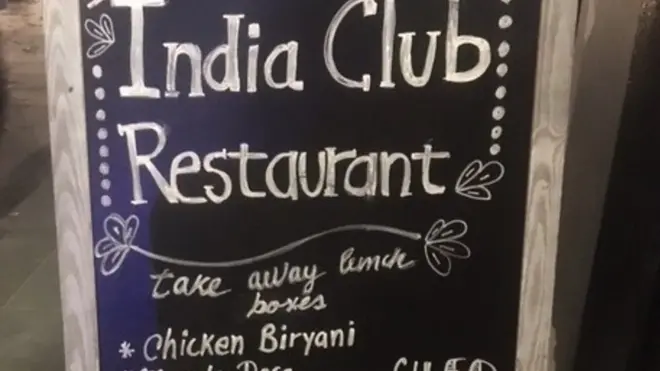 India Club
Restaurant
take away lunch
boxes
* Chicken Biryani